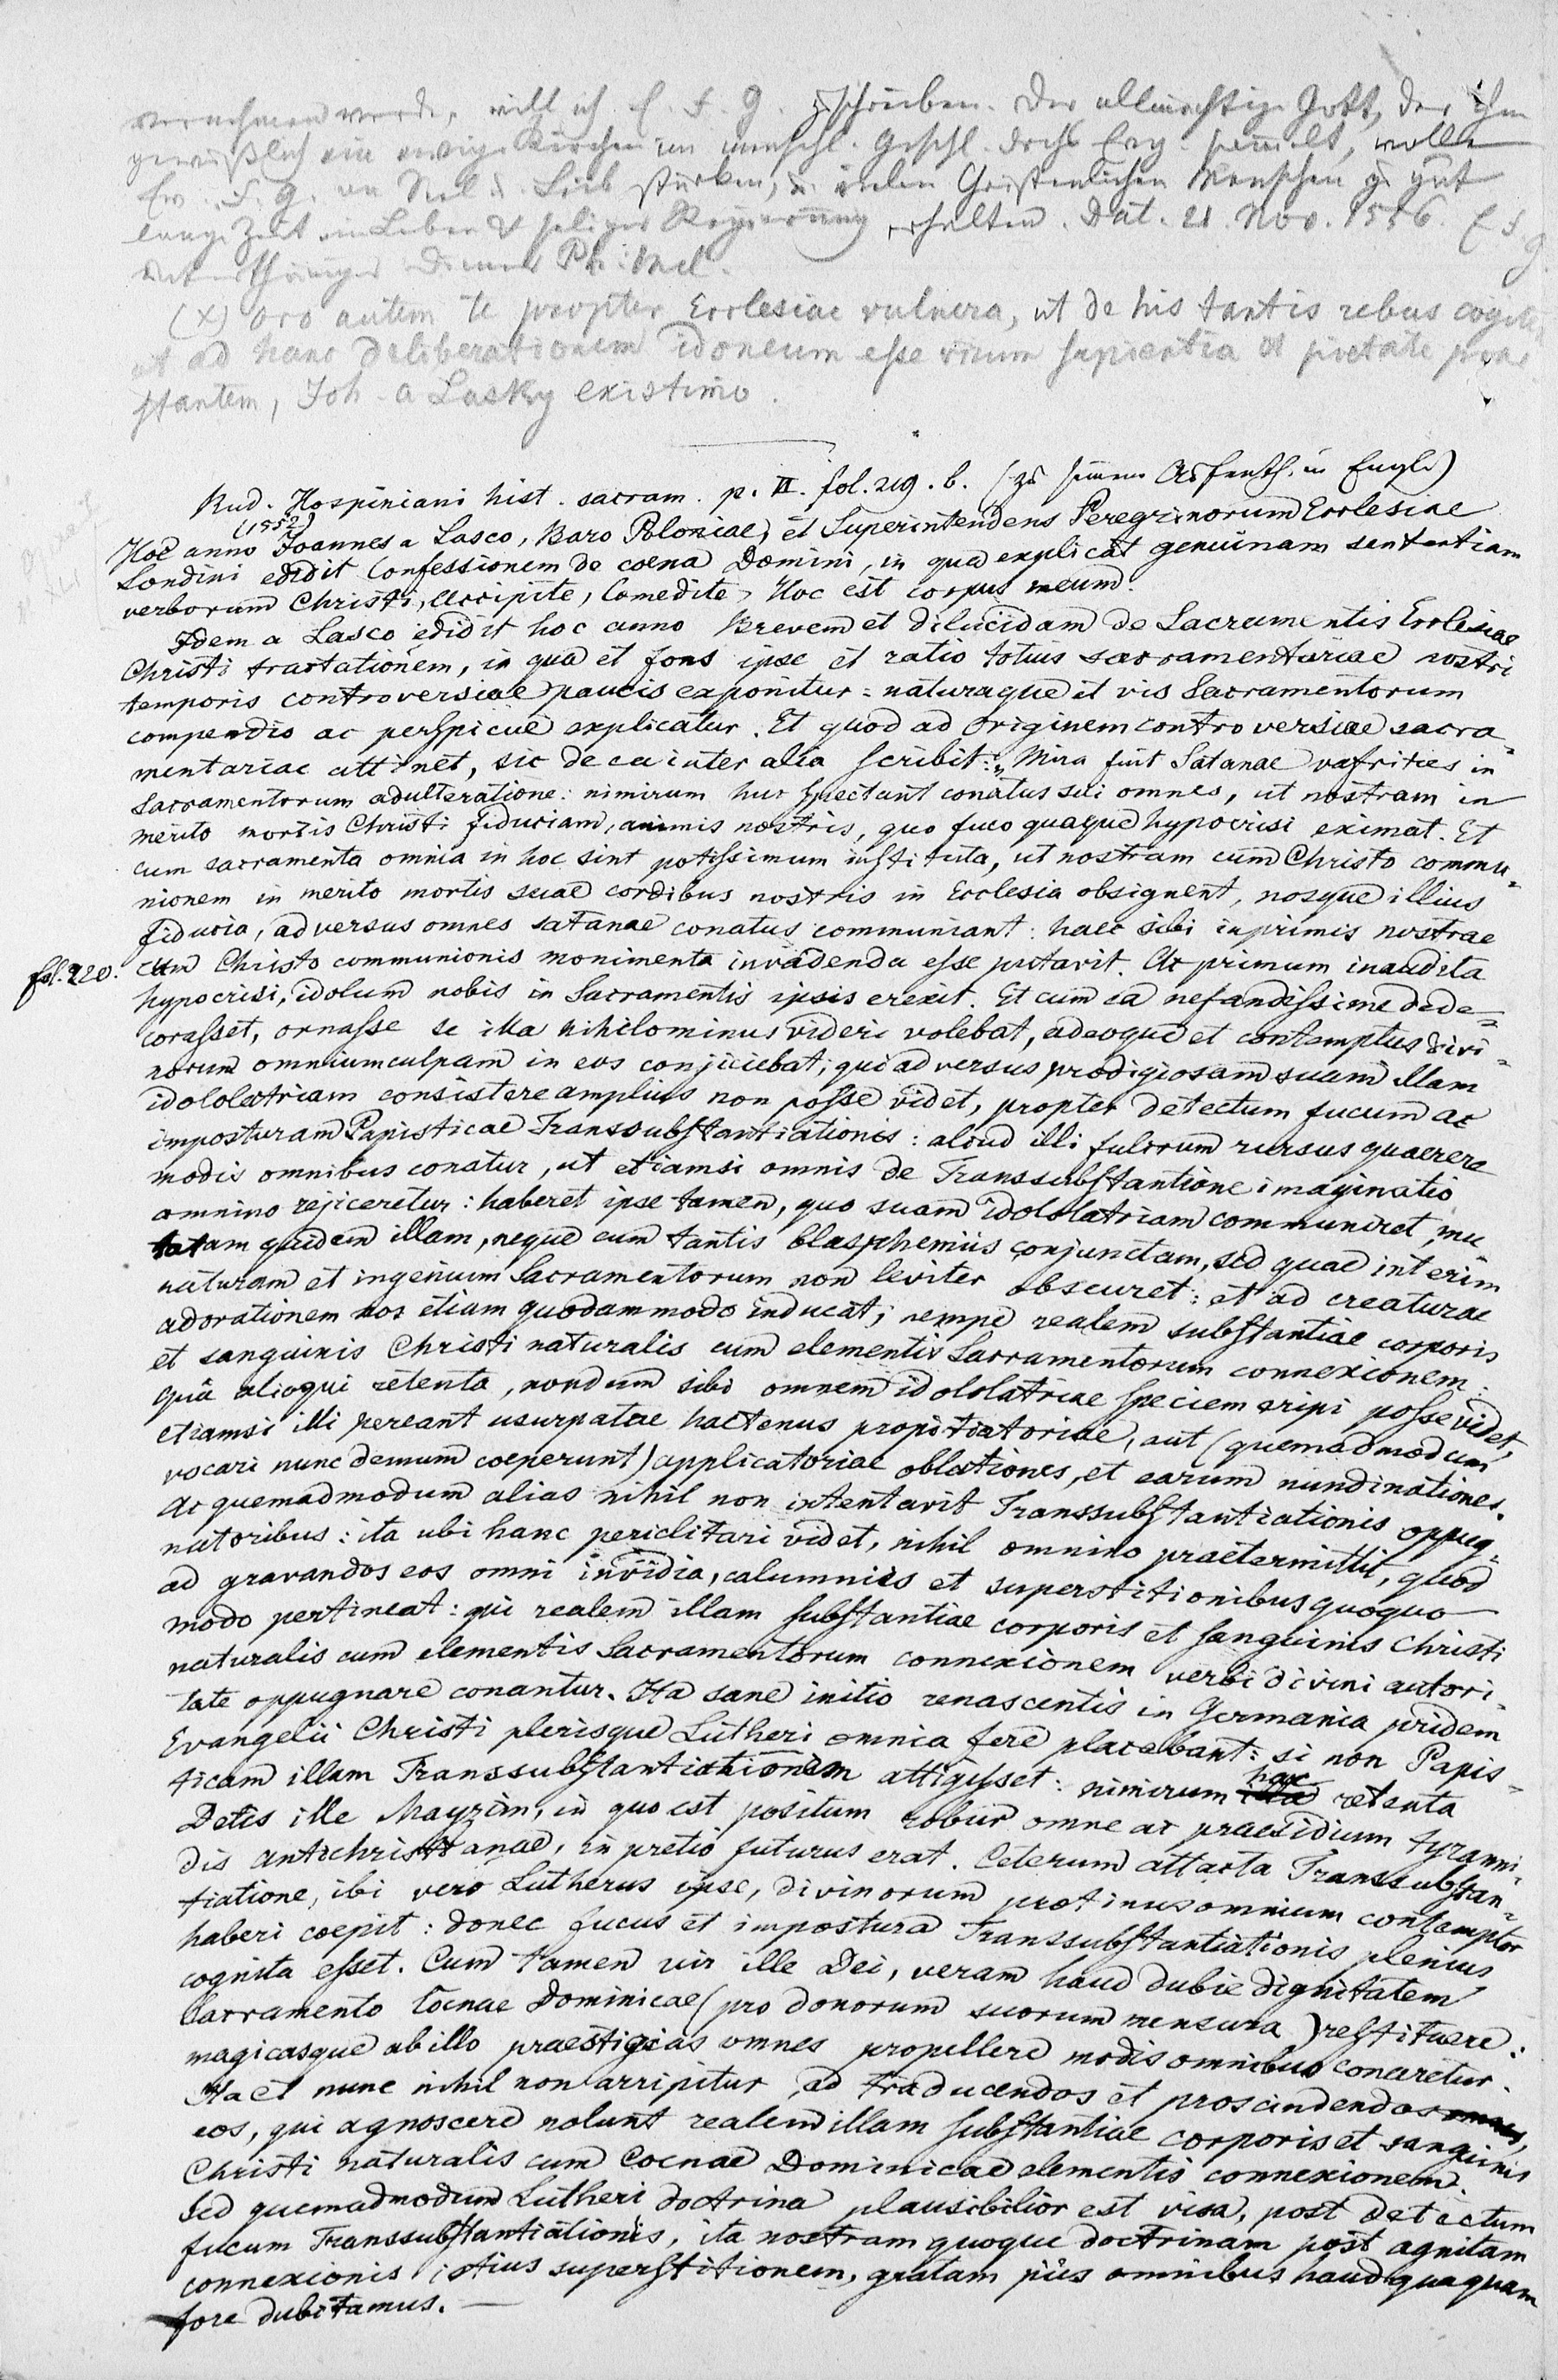 vernehmen werde, will ich E. F. G. zuschreiben. Der allmechtige Gott, der ihm
gewißlich ein ewige Kirchen im menschl. Geschl. durchs Evg. samelt, wolle
Ew. F. G. an Seel u. Leib stärken, u. vielen Christenlichen Menschen zu gut
lange Zeit im Leben & seliger Regierung erhalten. Dat. 21. Nov. 1556. E F G.
unterthäniger Diener Ph: Mel.
(x) oro autem te propter Ecclesiae vulnera, ut de his tantis rebus cogites
ut ad hanc deliberationem idoneum esse virum sapientia et pietate prae
stantem, Joh. a Lasky existimo.
Rud. Hospiniani hist. sacram. p. II. fol. 219. b. (zu seinem Aufenth. in Engl.)
(1552)
Hoc anno Joannes a Lasco, Baro Poloniae, et Superintendens Peregrinorum Ecclesiae
Londini edidit Confessionem de coena Domini, in qua explicat genuinam sententiam
verborum Christi, Accipite, Comedite, Hoc est corpus meum.
Idem a Lasco edidit hoc anno Brevem et dilucidam de Sacramentis Ecclesiae
Christi tractationem, in qua et fons ipse et ratio totius sacramentariae nostri
temporis controversiae paucis exponitur: naturaque et vis Sacramentorum
compendio ac perspicue explicatur. Et quod ad originem controversiae sacra=
mentariae attinet, sic de ea inter alia scribit: „Mira fuit Satanae vafrities in
Sacramentorum adulteratione: nimirum huc spectant conatus sui omnes, ut nostram in
merito mortis Christi fiduciam, animis nostris, quo fuco quaque hypocrisi eximat. Et
cum sacramenta omnia in hoc sint potissimum instituta, ut nostram cum Christo commu=
nionem in merito mortis suae cordibus nostris in Ecclesia obsignent, nosque illius
fiducia, adversus omnes satanae conatus communiant: haec sibi inprimis nostrae
fol. 220. cum Christo communionis monimenta invadenda esse putavit. Ac primum inaudita
hypocrisi, idolum nobis in Sacramentis ipsis erexit. Et cum ea nefandissime dede=
corasset, ornasse se illa nihilominus videri volebat, adeoque et contemptus divi=
norum omnium culpam in eos conjiciebat; qui adversus prodigiosam suam illam
idololatriam consistere amplius non posse videt, propter detectum fucum ac
imposturam Papisticae Transsubstantiationis: aliud illi fulcrum rursus quaerere
modis omnibus conatur, ut etiamsi omnis de Transsubstantione imaginatio
omnino rejiceretur: haberet ipse tamen, quo suam idololatriam communiret, mu
tatam quidem illam, neque cum tantis blasphemiis conjunctam, sed quae interim
naturam et ingenium Sacramentorum non leviter obscuret: et ad creaturae
adorationem nos etiam quodammodo inducat; nempe realem substantiae corporis
et sanguinis Christi naturalis cum elementis Sacramentorum connexionem:
quâ alioqui retenta, nondum sibi omnem idololatriae speciem eripi posse videt,
etiamsi illi pereant usurpatae hactenus propitiatoriae, aut (quemadmodum
vocari nunc demum coeperunt) applicatoriae oblationes, et earum nundinationes.
Ac quemadmodum alias nihil non intentavit Transsubstantiationis oppug=
natoribus: ita ubi hanc periclitari videt, nihil omnino praetermittit, quod
ad gravandos eos omni invidia, calumniis et superstitionibus quoquo
modo pertineat: qui realem illam substantiae corporis et sanguinis Christi
naturalis cum elementis Sacramentorum connexionem verbi divini autori=
tate oppugnare conantur. Ita sane initio renascentis in Germania pridem
Evangelii Christi plerisque Lutheri omnia fere placebant: si non Papis=
ticam illam Transsubstantiationem attigisset: nimirum hac retenta
Deus ille Mayzim, in quo est positum robur omne ac praesidium tyranni=
dis antichristianae, in pretio futurus erat. Ceterum attacta Transsubstan=
tiatione, ibi vero Lutherus ipse, divinorum protinus omnium contemptor
haberi coepit: donec fucus et impostura Transsubstantiationis plenius
cognita esset. Cum tamen vir ille Dei, veram haud dubie dignitatem
Sacramento Coenae Dominicae (pro donorum suorum mensura) restituere:
magicasque ab illo praestigias omnes propellere modis omnibus conaretur.
Ita et nunc nihil non arripitur, ad traducendos et proscindendos omnes,
eos, qui agnoscere nolunt realem illam substantiae corporis et sanguinis
Christi naturalis cum Coenae Dominicae elementis connexionem.
Sed quemadmodum Lutheri doctrina plausibilior est visa, post detectum
fucum Transsubstantiationis, ita nostram quoque doctrinam post agnitam
connexionis istius superstitionem, gratam piis omnibus haudquaquam
fore dubitamus. —